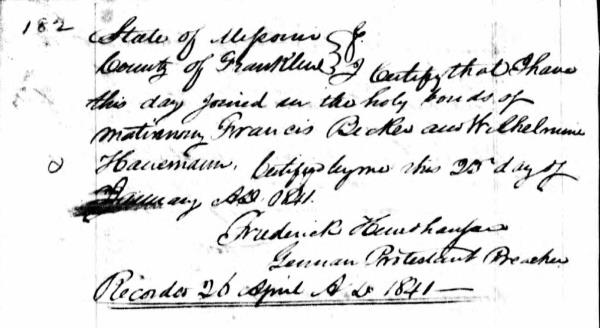 182
State of Missouri
County of Franklin } I Certify that I have
this day joined in the holy bonds of
matrimony Francis Becker and Wilhelmine
Certified by me this 25 day of
January AD. 1841.
Frederick
German Protestant Preacher
Recorded 26 April A D 1841